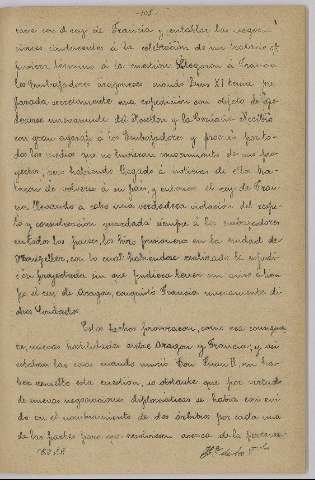 -103-
rarse con el rey de Francia y entablar las negocia
ciones conducentes á la celebración de un tratado q.
pusiera término á la cuestión. Llegaron á Francia
los Embajadores aragoneses cuando Luis XI tenía pre
parada secretamente una expedición con objeto de apo
derarse nuevamente del Rosellón y la Cerdaña. Recibió
con gran agasajo á los Embajadores y procuró por to-
dos los medios que no tuvieran conocimiento de sus pro
yectos, pero habiendo llegado á noticias de ellos tra
taron de volverse á su país, y entonces el rey de Fran
cia llevando á cabo una verdadera violación del respe
to y consideración guardada siempre á los embajadores
en todos los países, los hizo prisioneros en la ciudad de
Montpellier, con lo cual habiéndose realizado la expedi
ción proyectada sin que pudiera tener un aviso á tiem
po el rey de Aragón, conquistó Francia nuevamente di
chos Condados.
Estos hechos provocaron, como era consiguien
te, nuevas hostilidades entre Aragón y Francia, y así
estaban las cosas cuando murió Don Juan II, sin ha-
berse resuelto esta cuestión, no obstante que por virtud
de nuevas negociaciones diplomáticas se había conveni
do en el nombramiento de dos árbitros por cada una
de las partes para que resolvieran acerca de la pertenen-